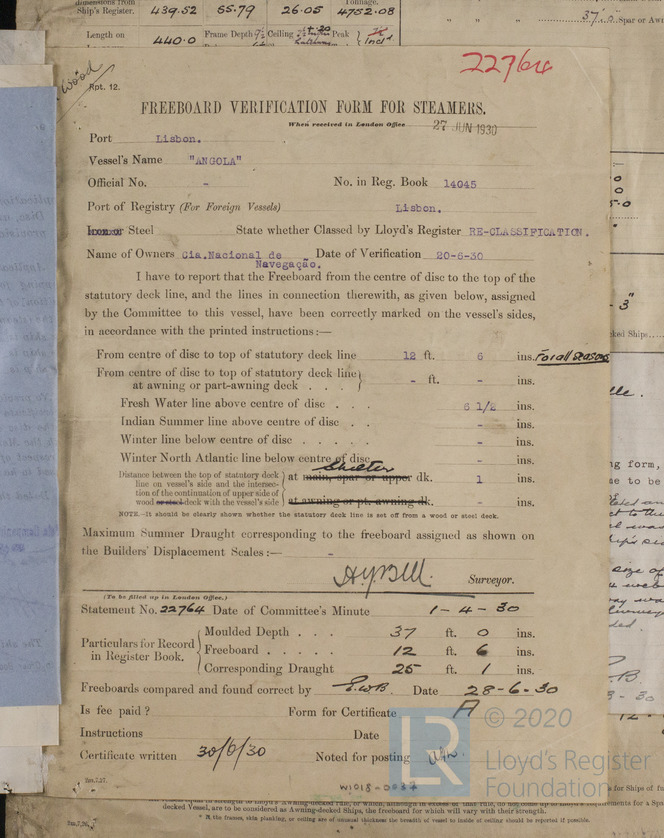 Ship's Register. 439.52 55.79 26.05 4752.08
Tonnage.
37 .0
Spar or Awn
Length on 440.0 Frame Depth Ceiling Peak
wood
22764
Rpt. 12.
FREEBOARD VERIFICATION FORM FOR STEAMERS.
When received in London Office 27 JUN 1930
Port Lisbon.
Vessel's Name "ANGOLA"
Official No. - No. in Reg. Book 14045
Port of Registry (For Foreign Vessels) Lisbon.
Iron or Steel State whether Classed by Lloyd's Register RE-CLASSIFICATION.
Name of Owners Cia.Nacional de Navegação. Date of Verification 20-6-30
I have to report that the Freeboard from the centre of disc to the top of the
statutory deck line, and the lines in connection therewith, as given below, assigned
by the Committee to this vessel, have been correctly marked on the vessel's sides,
in accordance with the printed instructions:—
From centre of disc to top of statutory deck line 12 ft. 6 ins. For all seasons
From centre of disc to top of statutory deck line
at awning or part-awning deck . . . - ft. - ins.
Fresh Water line above centre of disc . . . 6 1/2 ins.
Indian Summer line above centre of disc . . - ins.
Winter line below centre of disc . . . . . - ins.
Winter North Atlantic line below centre of disc - ins.
Shelter
Distance between the top of statutory deck
line on vessel's side and the intersec-
tion of the continuation of upper side of
wood or steel deck with the vessel's side
at main, spar or upper dk. 1 ins.
at awning or pt. awning dk. - ins.
NOTE.—It should be clearly shown whether the statutory deck line is set off from a wood or steel deck.
Maximum Summer Draught corresponding to the freeboard assigned as shown on
the Builders' Displacement Scales :— -
Surveyor.
(To be filled up in London Office.)
Statement No. 22764 Date of Committee's Minute 1-4-30
Particulars for Record
in Register Book.
Moulded Depth . . . 37 ft. 0 ins.
Freeboard . . . . . 12 ft. 6 ins.
Corresponding Draught 25 ft. 1 ins.
Freeboards compared and found correct by E.W.B. Date 28-6-30
Is fee paid ? Form for Certificate A
Instructions Date
Certificate written 30/6/30 Noted for posting
2m.7,27.
W1018-0037
LR
© 2020
Lloyd's Register
Foundation
decked Vessel, are to be considered as Awning-decked Ships, the freeboard for which will vary with their strength.
* If the frames, skin planking, or ceiling are of unusual thickness the breadth of vessel to inside of ceiling should be reported if possible.